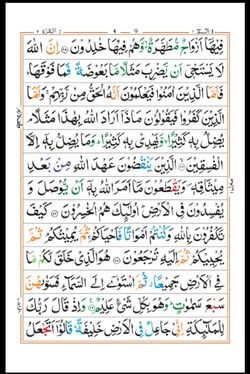 البقرة ٢ ٩ الٓمّ ١
فِيْهَاۤ اَزْوَاجٌ مُّطَهَّرَةٌ وَّهُمْ فِيْهَا خٰلِدُوْنَ ﴿۲۵﴾ اِنَّ اللّٰهَ
لَا يَسْتَحْيٖۤ اَنْ يَّضْرِبَ مَثَلًا مَّا بَعُوْضَةً فَمَا فَوْقَهَا ؕ
فَاَمَّا الَّذِيْنَ اٰمَنُوْا فَيَعْلَمُوْنَ اَنَّهُ الْحَقُّ مِنْ رَّبِّهِمْ ۚ وَاَمَّا
الَّذِيْنَ كَفَرُوْا فَيَقُوْلُوْنَ مَاذَاۤ اَرَادَ اللّٰهُ بِهٰذَا مَثَلًا ۘ
يُضِلُّ بِهٖ كَثِيْرًا ۙ وَّيَهْدِيْ بِهٖ كَثِيْرًا ؕ وَمَا يُضِلُّ بِهٖۤ اِلَّا
الْفٰسِقِيْنَ ﴿۲۶﴾ الَّذِيْنَ يَنْقُضُوْنَ عَهْدَ اللّٰهِ مِنْۢ بَعْدِ
مِيْثَاقِهٖ ۪ وَيَقْطَعُوْنَ مَاۤ اَمَرَ اللّٰهُ بِهٖۤ اَنْ يُّوْصَلَ وَ
يُفْسِدُوْنَ فِي الْاَرْضِ ؕ اُولٰٓئِكَ هُمُ الْخٰسِرُوْنَ ﴿۲۷﴾ كَيْفَ
تَكْفُرُوْنَ بِاللّٰهِ وَكُنْتُمْ اَمْوَاتًا فَاَحْيَاكُمْ ۚ ثُمَّ يُمِيْتُكُمْ ثُمَّ
يُحْيِيْكُمْ ثُمَّ اِلَيْهِ تُرْجَعُوْنَ ﴿۲۸﴾ هُوَ الَّذِيْ خَلَقَ لَكُمْ مَّا
فِي الْاَرْضِ جَمِيْعًا ۗ ثُمَّ اسْتَوٰۤى اِلَى السَّمَآءِ فَسَوّٰىهُنَّ
سَبْعَ سَمٰوٰتٍ ؕ وَهُوَ بِكُلِّ شَيْءٍ عَلِيْمٌ ﴿۲۹﴾ وَاِذْ قَالَ رَبُّكَ
لِلْمَلٰٓئِكَةِ اِنِّيْ جَاعِلٌ فِي الْاَرْضِ خَلِيْفَةً ؕ قَالُوْۤا اَتَجْعَلُ